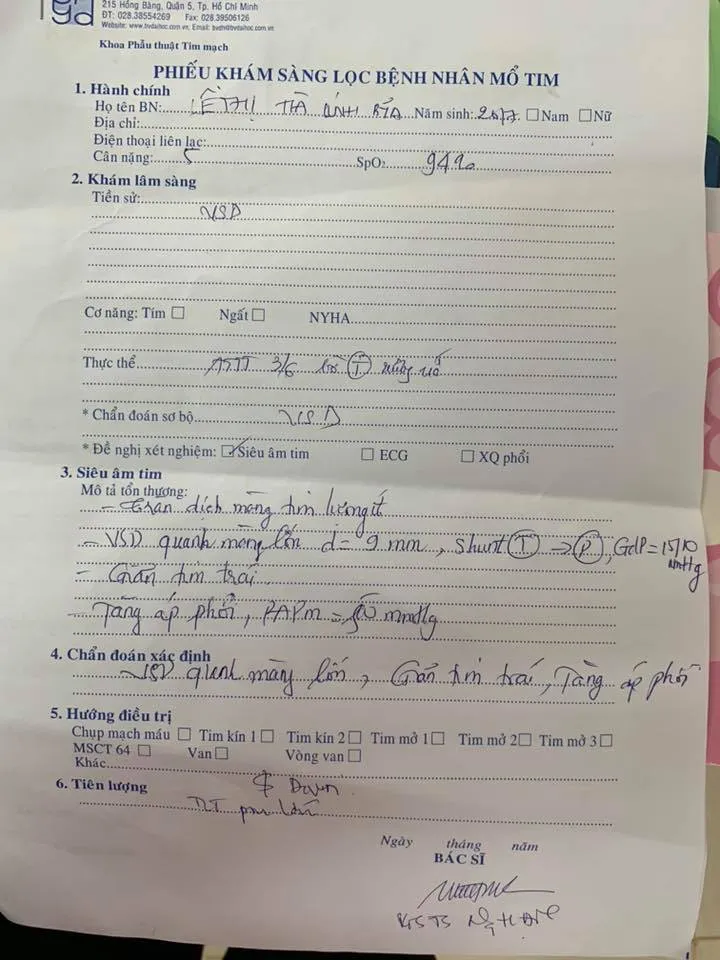 215 Hồng Bàng, Quận 5, Tp. Hồ Chí Minh
ĐT: 028.38554269 Fax: 028.39506126
Website: www.bvdaihoc.com.vn; Email: bvdh@bvdaihoc.com.vn
Khoa Phẫu thuật Tim mạch
PHIẾU KHÁM SÀNG LỌC BỆNH NHÂN MỔ TIM
1. Hành chính
Họ tên BN: LÊ THỊ Năm sinh: ☐ Nam ☐ Nữ
Địa chỉ:
Điện thoại liên lạc:
Cân nặng: 5 SpO2 94%
2. Khám lâm sàng
Tiền sử:
VSD
Cơ năng: Tím ☐ Ngất ☐ NYHA
Thực thể 3/6 bờ (T)
* Chẩn đoán sơ bộ VSD
* Đề nghị xét nghiệm: ☑ Siêu âm tim ☐ ECG ☐ XQ phổi
3. Siêu âm tim
Mô tả tổn thương:
- Tràn dịch màng tim lượng ít
- VSD quanh màng lớn d = 9 mm, shunt (T) → (P), GdP = 15/10 mmHg
- Giãn tim trái
- Tăng áp phổi, PAPm = mmHg
4. Chẩn đoán xác định
VSD quanh màng lớn, Giãn tim trái, Tăng áp phổi
5. Hướng điều trị
Chụp mạch máu ☐ Tim kín 1 ☐ Tim kín 2 ☐ Tim mở 1 ☐ Tim mở 2 ☐ Tim mở 3 ☐
MSCT 64 ☐ Van ☐ Vòng van ☐
Khác
6. Tiên lượng Down
Ngày tháng năm
BÁC SĨ